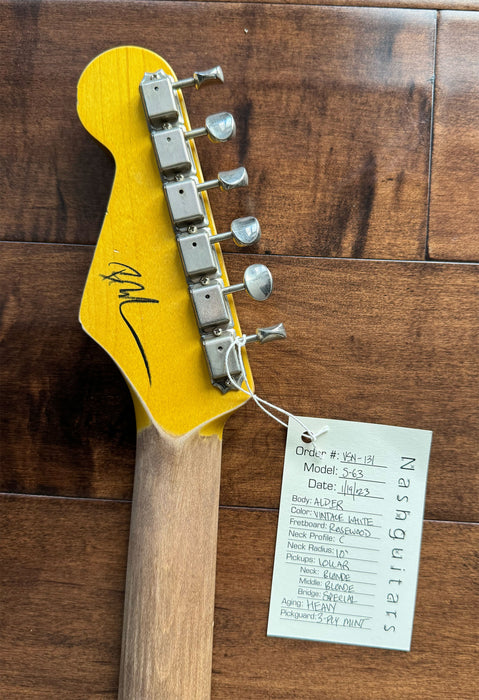 Order #: VSN-131
Model: S-63
Date: 1/19/23
Body: ALDER
Color: VINTAGE WHITE
Fretboard: ROSEWOOD
Neck Profile: C
Neck Radius: 10"
Pickups: LOLLAR
Neck: BLONDE
Middle: BLONDE
Bridge: SPECIAL
Aging: HEAVY
Pickguard: 3-PLY MINT
Nashguitars